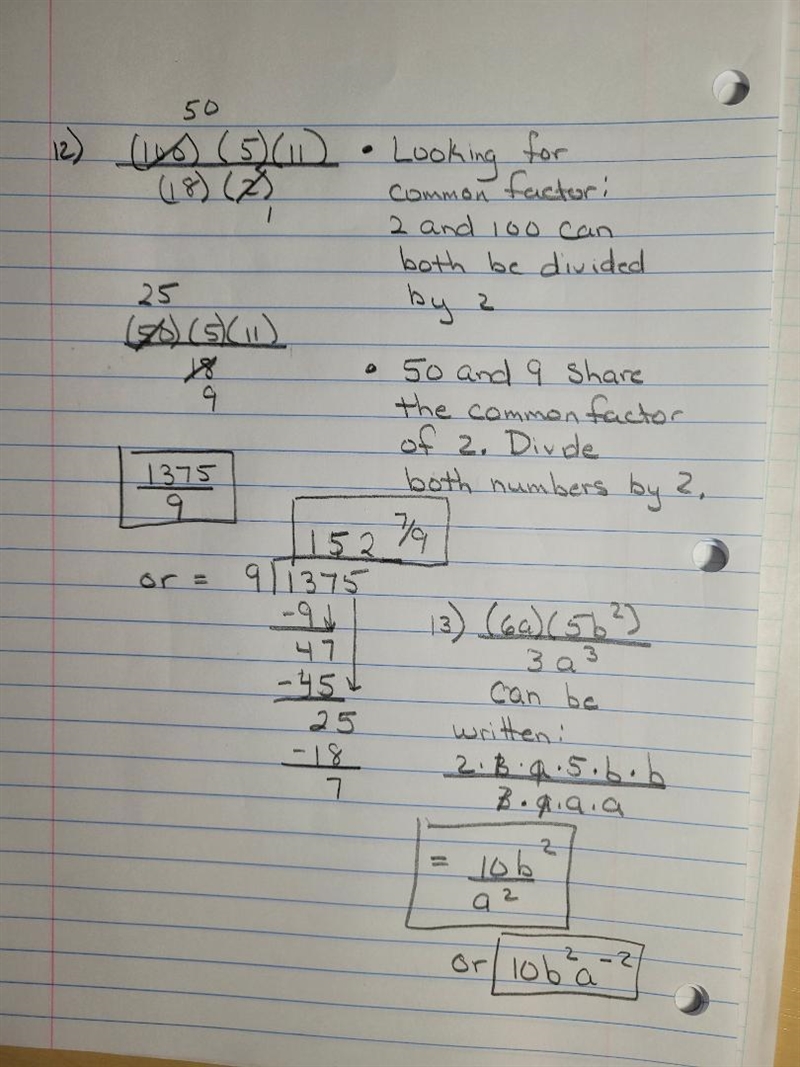 50
12) (100) (5)(11)
(18) (2)
1
• Looking for
common factor:
2 and 100 can
both be divided
by 2
25
(50)(5)(11)
18
9
• 50 and 9 share
the common factor
of 2. Divde
both numbers by 2.
1375
9
152 7/9
or = 9 1375
-9
47
-45
25
-18
7
13) (6a)(5b²)
3a³
can be
written:
2 · 3 · a · 5 · b · b
3 · a · a · a
= 10b²
a²
or 10b²a⁻²